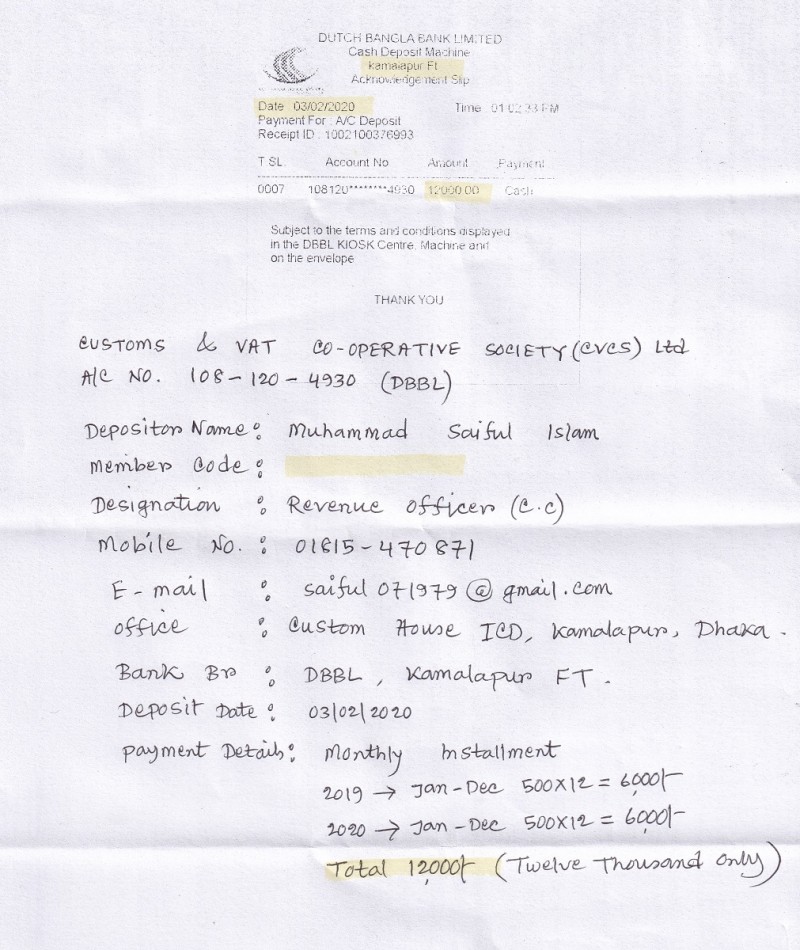 DUTCH BANGLA BANK LIMITED
Cash Deposit Machine
kamalapur Ft
Acknowledgement Slip
Date 03/02/2020 Time 01:02:33 PM
Payment For : A/C Deposit
Receipt ID : 1002100376993
T SL. Account No Amount Payment
0007 108120********4930 12000.00 Cash
Subject to the terms and conditions displayed
in the DBBL KIOSK Centre, Machine and
on the envelope
THANK YOU
CUSTOMS & VAT CO-OPERATIVE SOCIETY (CVCS) Ltd
A/C NO. 108-120-4930 (DBBL)
Depositor Name: Muhammad Saiful Islam
Member Code:
Designation : Revenue officer (C.C)
Mobile No. : 01815-470871
E-mail : saiful071979@gmail.com
office : Custom House ICD, Kamalapur, Dhaka.
Bank Br : DBBL, Kamalapur FT.
Deposit Date : 03/02/2020
Payment Details: Monthly Installment
2019 → Jan-Dec 500X12 = 6,000/-
2020 → Jan-Dec 500X12 = 6,000/-
Total 12,000/- (Twelve Thousand Only)